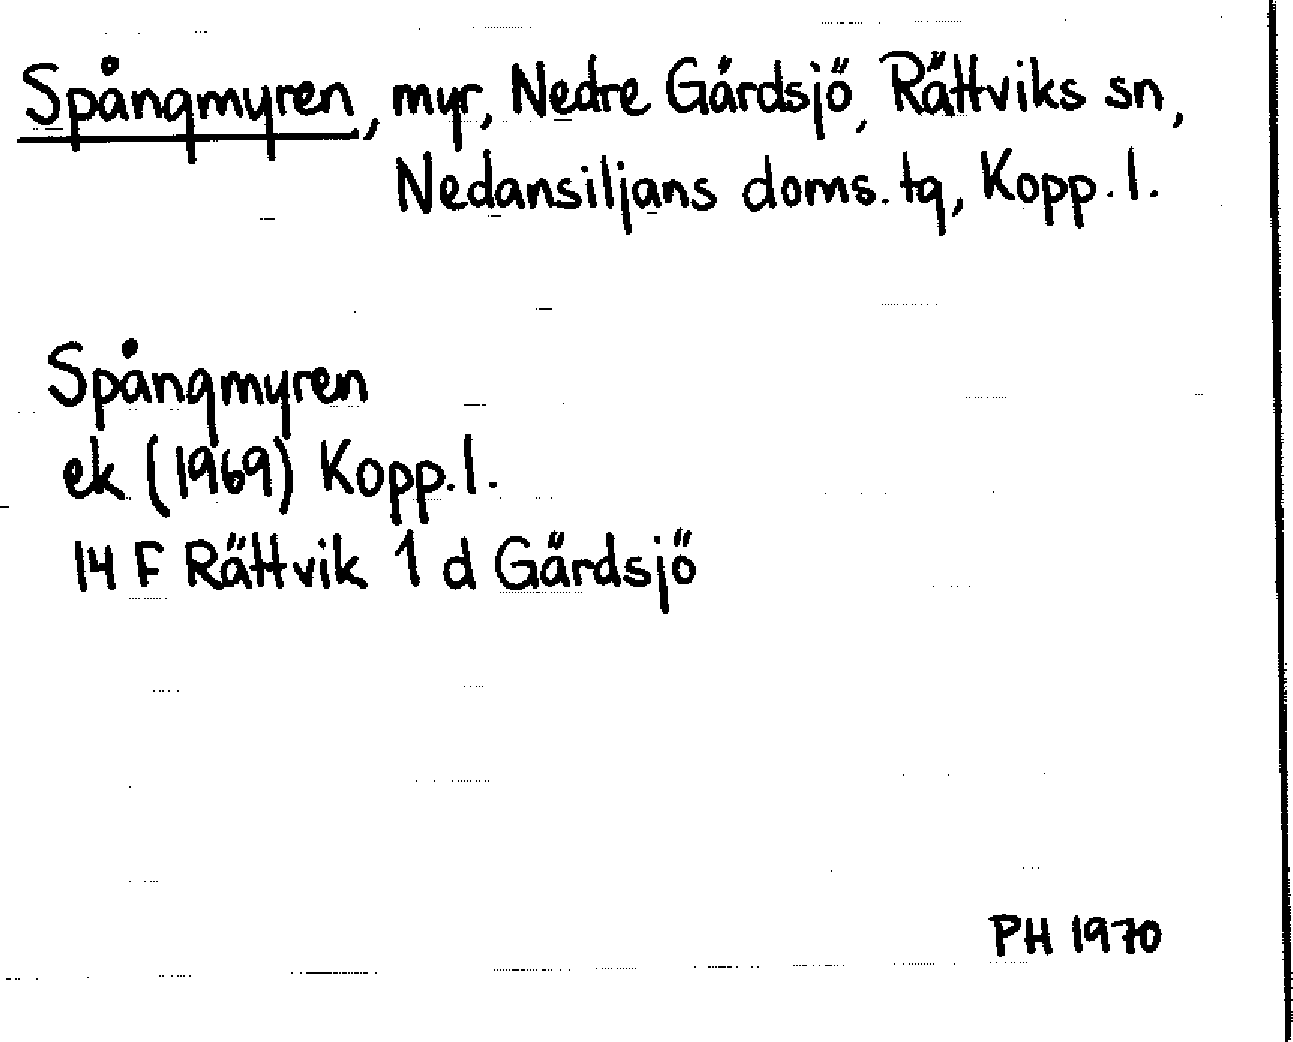 Spångmyren, myr, Nedre Gärdsjö, Rättviks sn,
Nedansiljans doms. tg, Kopp. l.
Spångmyren
ek (1969) Kopp. l.
14 F Rättvik 1 d Gärdsjö
PH 1970